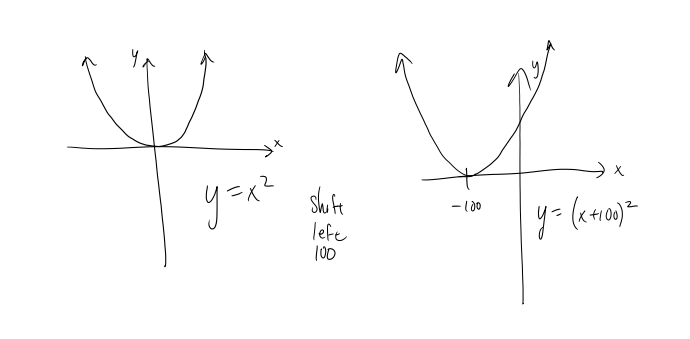 y
x
y = x²
shift
left
100
y
x
-100
y = (x+100)²